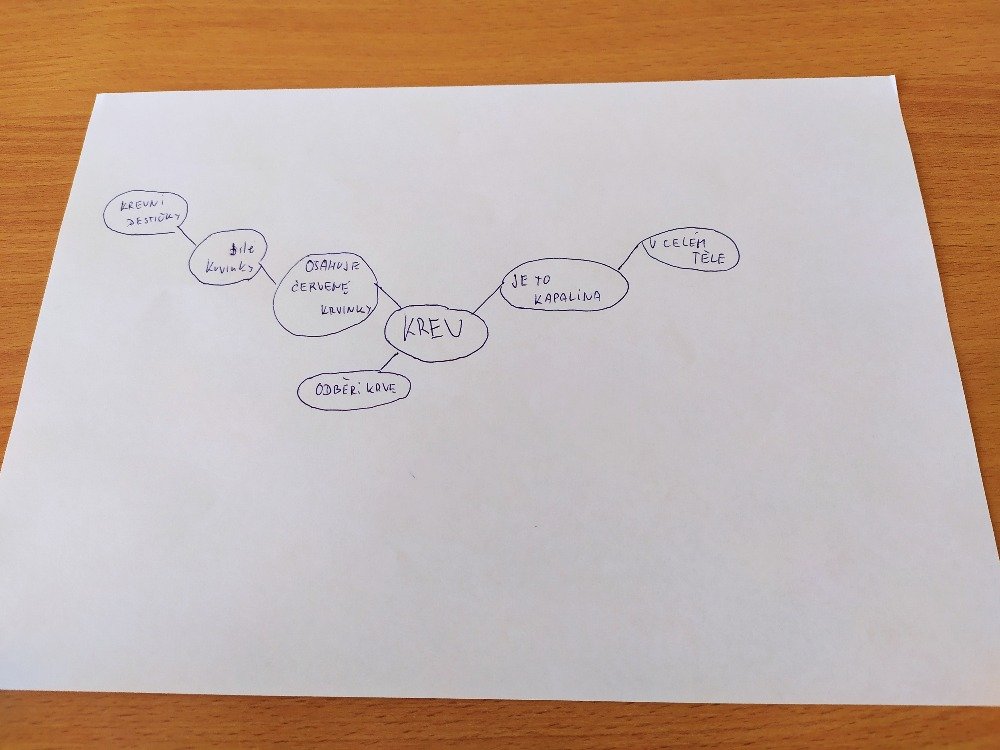 KREVNI
DESTIČKY
bíle
krvinky
OSAHUJE
ČERVENÉ
KRVINKY
KREV
ODBĚRI KRVE
JE TO
KAPALINA
V CELÉM
TĚLE